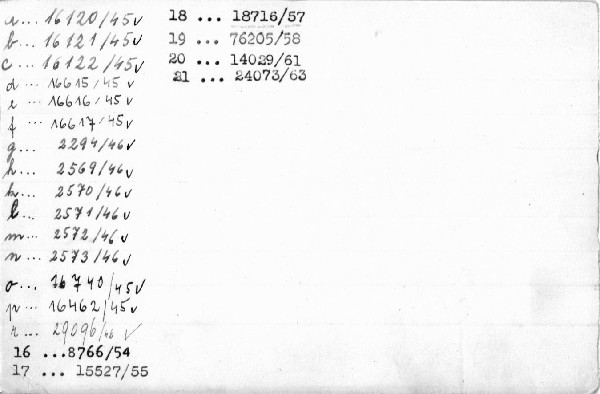 a... 16120/45 v
b... 16121/45 v
c... 16122/45 v
d ... 16615/45 v
e ... 16616/45 v
f ... 16617/45 v
g... 2294/46 v
h... 2569/46 v
k... 2570/46 v
l... 2571/46 v
m... 2572/46 v
n... 2573/46 v
o... 16740/45 v
p... 16462/45 v
r... 29096/46 v
16 ...8766/54
17 ... 15527/55
18 ... 18716/57
19 ... 76205/58
20 ... 14029/61
21 ... 24073/63